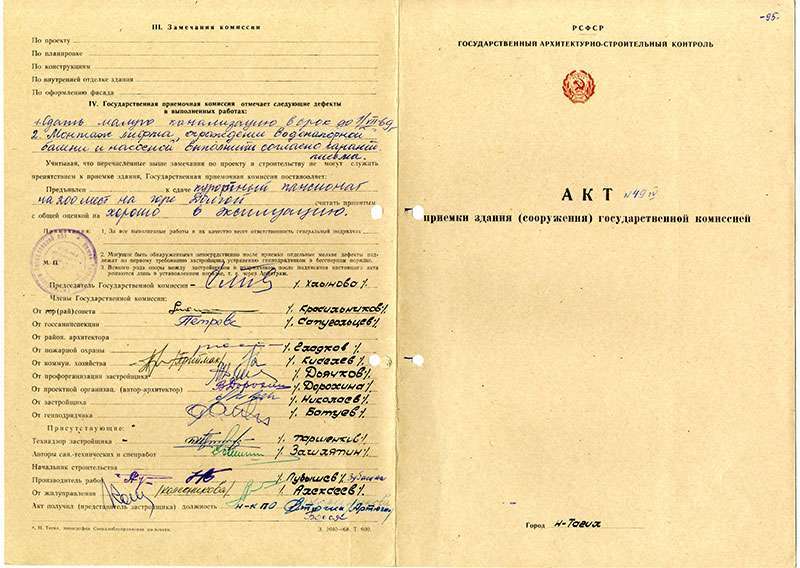 III. Замечания комиссии
По проекту
По планировке
По конструкциям
По внутренней отделке здания
По оформлению фасада
IV. Государственная приемочная комиссия отмечает следующие дефекты
в выполненных работах:
1. Сдать малую канализацию в срок до 1/VII-69
2. "Монтаж лифта, ограждении водонапорной
башни и насосной выполнить согласно гарант.
письма.
Учитывая, что перечисленные выше замечания по проекту и строительству не могут служить
препятствием к приемке здания, Государственная приемочная комиссия постановляет:
Предъявлен к сдаче курортный пансионат
на 200 мест на горе Долгой считать принятым
с общей оценкой на хорошо в эксплуатацию.
Примечания: 1. За все выполненные работы и их качество несет ответственность генеральный подрядчик
М. П. 2. Могущие быть обнаруженными непосредственно после приемки отдельные мелкие дефекты подлежат по первому требованию застройщика устранению генподрядчиком в бесспорном порядке.
3. Всякого рода споры между застройщиком и подрядчиком после подписания настоящего акта
решаются лишь в установленном порядке, т. е. через Арбитраж.
Председатель Государственной комиссии /. Халново /.
Члены Государственной комиссии:
От гор(рай)совета /. Красильников /.
От госсанинспекции Петрова /.
От район. архитектора
От пожарной охраны /. Гладков /.
От коммун. хозяйства /. Киселев /.
От профорганизации застройщика /. Дьячков /.
От проектной организац. (автор-архитектор) /. Дорохина /.
От застройщика /. Николаев /.
От генподрядчика /. Батуев /.
Присутствующие:
Технадзор застройщика /. Паршенков /.
Авторы сан.-технических и спецработ /. Замятин /.
Начальник строительства
Производитель работ /. Лубышев /.
От жилуправления /. Алексеев /.
Акт получил (представитель застройщика) должность н-к ПО
г. Н. Тагил, типография З. 3940—68. Т. 600.
-95-
РСФСР
ГОСУДАРСТВЕННЫЙ АРХИТЕКТУРНО-СТРОИТЕЛЬНЫЙ КОНТРОЛЬ
АКТ №49
приемки здания (сооружения) государственной комиссией
Город Н-Тагил